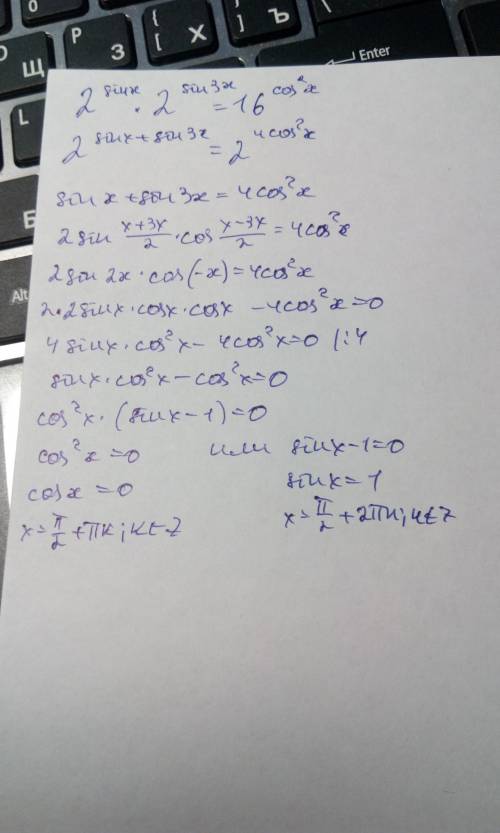 0
{ [ Х
} ] Ъ
Р З
Щ
Enter
L
Б
Alt
2^sinx · 2^sin3x = 16^cos²x
2^sinx+sin3x = 2^4cos²x
sinx + sin3x = 4cos²x
2sin (x+3x)/2 · cos (x-3x)/2 = 4cos²x
2sin2x · cos(-x) = 4cos²x
2·2sinx·cosx·cosx - 4cos²x = 0
4sinx·cos²x - 4cos²x = 0 /:4
sinx·cos²x - cos²x = 0
cos²x · (sinx - 1) = 0
cos²x = 0 или sinx - 1 = 0
cosx = 0 sinx = 1
x = π/2 + πk; k∈Z x = π/2 + 2πk; k∈Z